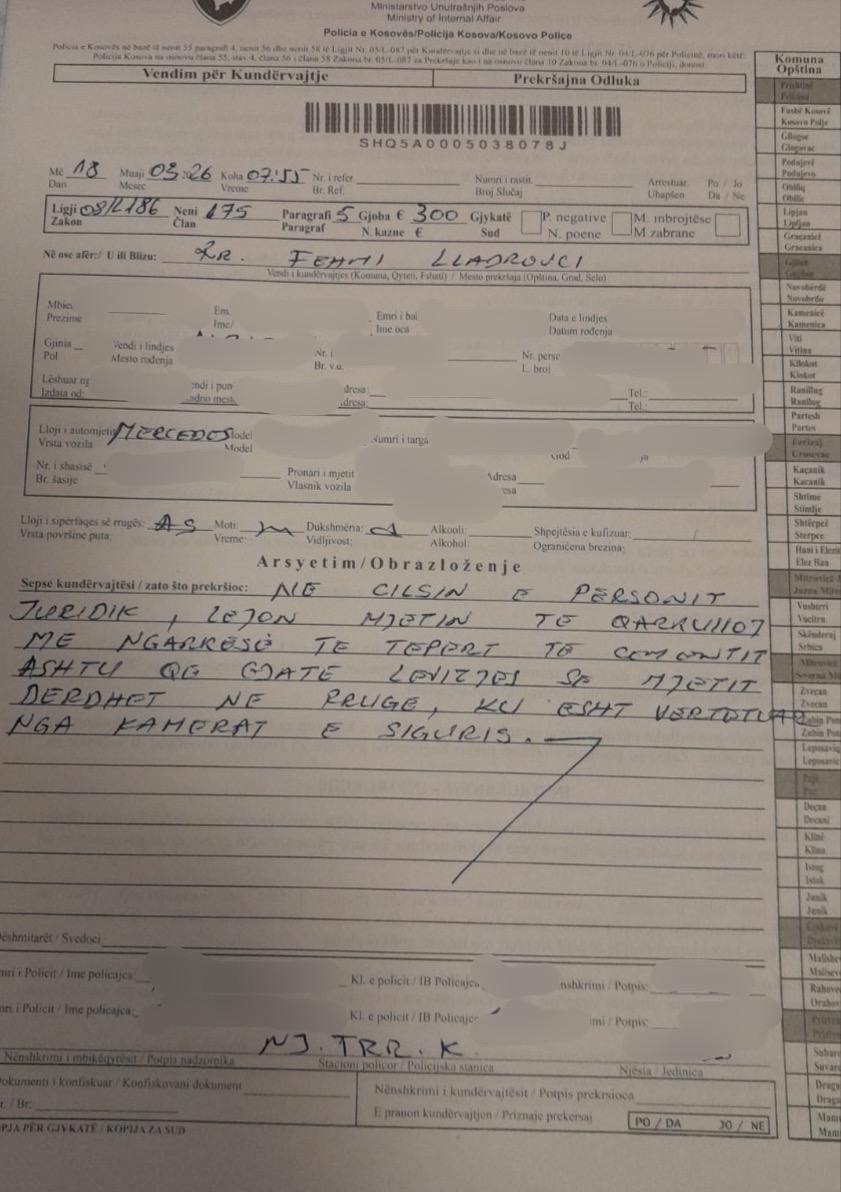 Ministarstvo Unutrašnjih Poslova
Ministry of Internal Affair
Policia e Kosovës/Policija Kosova/Kosovo Police
Policia e Kosovës në bazë të nenit 55 paragrafi 4, nenit 56 dhe nenit 58 të Ligjit Nr. 05/L-087 për Kundërvajtje si dhe në bazë të nenit 10 të Ligjit Nr. 04/L-076 për Policinë, mori këtë:
Policija Kosova na osnovu člana 55, stav 4, člana 56 i člana 58 Zakona br. 05/L-087 za Prekršaje kao i na osnovu člana 10 Zakona br. 04/L-076 o Policiji, donosi:
Vendim për Kundërvajtje Prekršajna Odluka
SHQ5A0005038078J
Më 18 Muaji 03 26 Koha 07:55 Nr. i refer. Numri i rastit. Arrestuar Po / Jo
Dan Mesec Vreme Br. Ref. Broj Slučaj Uhapšen Da / Ne
Ligji 08/L186 Neni 175 Paragrafi 5 Gjoba € 300 Gjykatë P. negative M. mbrojtëse
Zakon Član Paragraf N. kazne € Sud N. poene M zabrane
Në ose afër:/ U ili Blizu: RR. FEHMI LLADROVCI
Vendi i kundërvajtjes (Komuna, Qyteti, Fshati) / Mesto prekršaja (Opština, Grad, Selo)
Mbiem Em Emri i bal Data e lindjes
Prezime Ime/ Ime oca Datum rođenja
Gjinia Vendi i lindjes Nr. i Nr. perse
Pol Mesto rođenja Br. v.u. L. broj
Lëshuar ng endi i pun dresa: Tel.:
Izdata od: adno mest dresa: Tel.:
Lloji i automjetit MERCEDES lodel Numri i targa
Vrsta vozila Model
Nr. i shasisë Pronari i mjetit Adresa
Br. šasije Vlasnik vozila esa
Lloji i sipërfaqes së rrugës: AS Moti: Dukshmëria: Alkooli: Shpejtësia e kufizuar:
Vrsta površine puta: Vreme: Vidljivost: Alkohol: Ograničena brezina:
Arsyetim/Obrazloženje
Sepse kundërvajtësi / zato što prekršioc: NE CILSIN E PERSONIT
JURIDIK, LEJON MJETIN TE QARKULLOJ
ME NGARKESË TE TEPERT TË
ASHTU QE GJATE LEVIZJES SE MJETIT
DERDHET NE RRUGE, KU ESHT VERTETUAR
NGA KAMERAT E SIGURIS.
ëshmitarët / Svedoci
mri i Policit / Ime policajca: Kl. e policit / IB Policajca nshkrimi / Potpis:
mri i Policit / Ime policajca: Kl. e policit / IB Policajce imi / Potpis:
NJ. TRR. K.
Nënshkrimi i mbikëqyrësit / Potpis nadzornika Stacioni policor / Policijska stanica Njësia / Jedinica
okumenti i konfiskuar / Konfiskovani dokument Nënshkrimi i kundërvajtësit / Potpis prekrsioca
r. / Br: E pranon kundërvajtjen / Priznaje prekersaj PO / DA JO / NE
PJA PËR GJYKATË / KOPIJA ZA SUD
Komuna
Opština
Prishtinë
Fushë Kosovë
Kosovo Polje
Gllogoc
Glogovac
Podujevë
Podujevo
Obiliq
Obilić
Lipjan
Lipljan
Graçanicë
Gracanica
Novobërdë
Novobrdo
Kamenicë
Kamenica
Viti
Vitina
Kllokot
Klokot
Ranillug
Ranilug
Partesh
Partes
Ferizaj
Urosevac
Kaçanik
Kacanik
Shtime
Stimlje
Shtërpcë
Sterpce
Hani i Elezit
Elez Han
Vushtrri
Vucitrn
Skënderaj
Srbica
Zveçan
Zvecan
Zubin Pot
Zubin Pot
Leposaviq
Leposavic
Pejë
Pec
Deçan
Decani
Klinë
Klina
Istog
Istok
Junik
Junik
Malishev
Malisevo
Rahovec
Orahov
Suhare
Suvare
Draga
Draga
Mamu
Mam